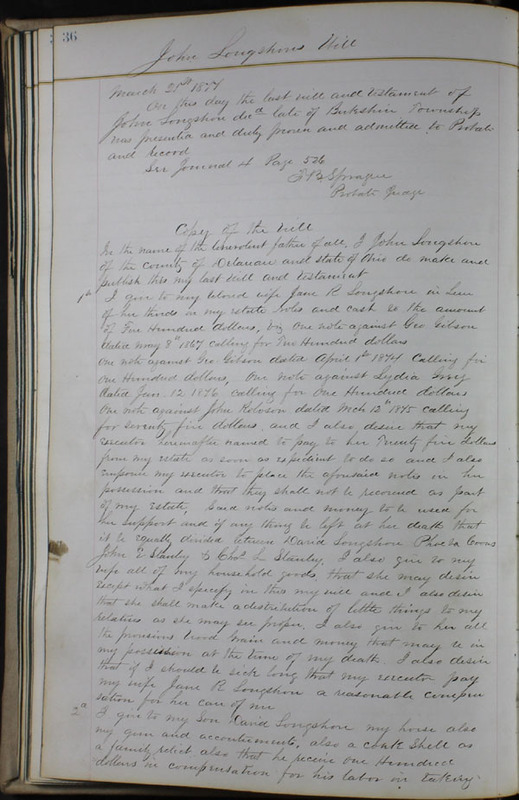 36
John Longshore Will
March 21st 1877
On this day the last will and testament of
John Longshore decd late of Berkshire Township
was presented and duly proven and admitted to Probate
and record
See Journal 4 Page 526
F B Sprague
Probate Judge
Copy of the Will
In the name of the benevolent father of all, I John Longshore
of the county of Delaware and state of Ohio do make and
publish this my last will and testament
1st I give to my beloved wife Jane R Longshore in lieu
of her thirds in my estate notes and cash to the amount
of Five Hundred dollars, viz One note against Geo Gibson
dated May 8th 1867 calling for Two Hundred dollars
One note against Geo Gibson dated April 1st 1874 calling for
One Hundred dollars, One note against Lydia
dated Jan. 12 1876 calling for One Hundred dollars
One note against John Robison dated Mch 13th 1875 calling
for seventy five dollars, and I also desire that my
executor hereinafter named to pay to her Twenty five dollars
from my estate as soon as expedient to do so and I also
empower my executor to place the aforesaid notes in her
possession and that they shall not be recovered as part
of my estate, Said notes and money to be used for
her support and if any thing be left at her death that
it be equally divided between David Longshore Phoeba
John E Stanley & Chas L Stanley I also give to my
wife all of my household goods, that she may desire
except what I specify in this my will and I also desire
that she shall make a distribution of little things to my
relatives as she may see proper, I also give to her all
the provisions wood grain and money that may be in
my possession at the time of my death. I also desire
that if I should be sick long that my executor pay
my wife Jane R Longshore a reasonable compen
sation for her care of me
2d I give to my Son David Longshore my horse also
my gun and accoutrements, also a conk Shell as
a family relict also that he receive One Hundred
dollars in compensation for his labor in taking